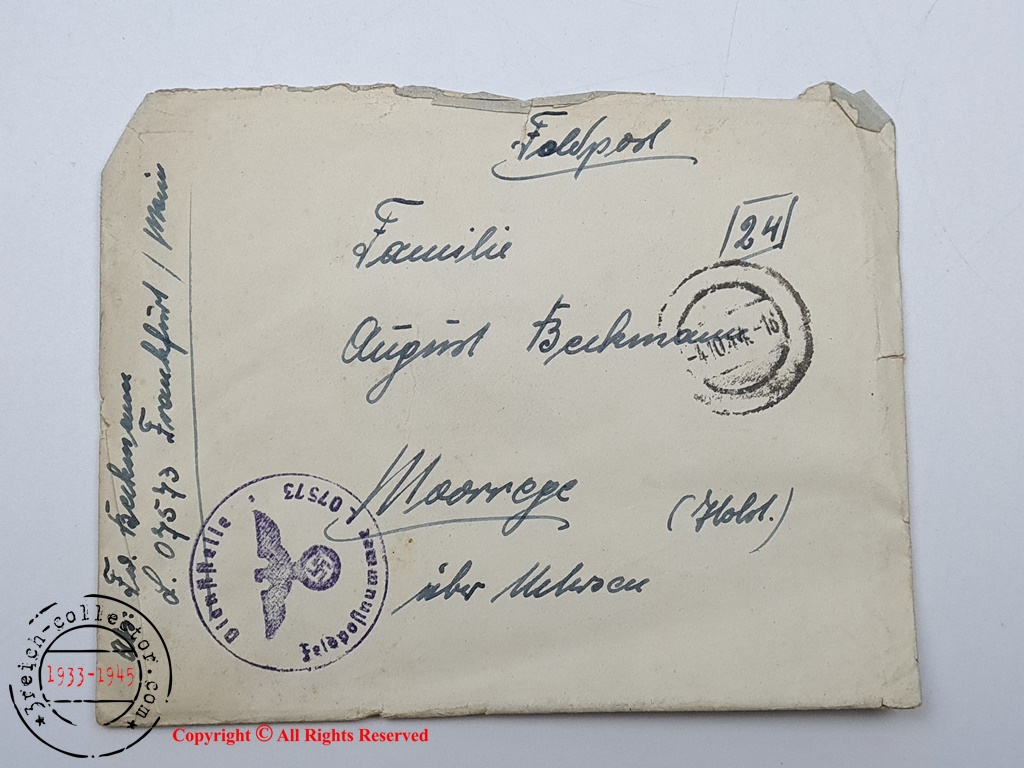 Feldpost
Familie
24
August Beckmann
-4.10.44.-16
Moorrege
(Holst.)
über Uetersen
Beckmann
L. 07573 Frankfurt / Main
Dienststelle
Feldpostnummer
L 07573
3reich-collector.com
1933-1945
Copyright © All Rights Reserved